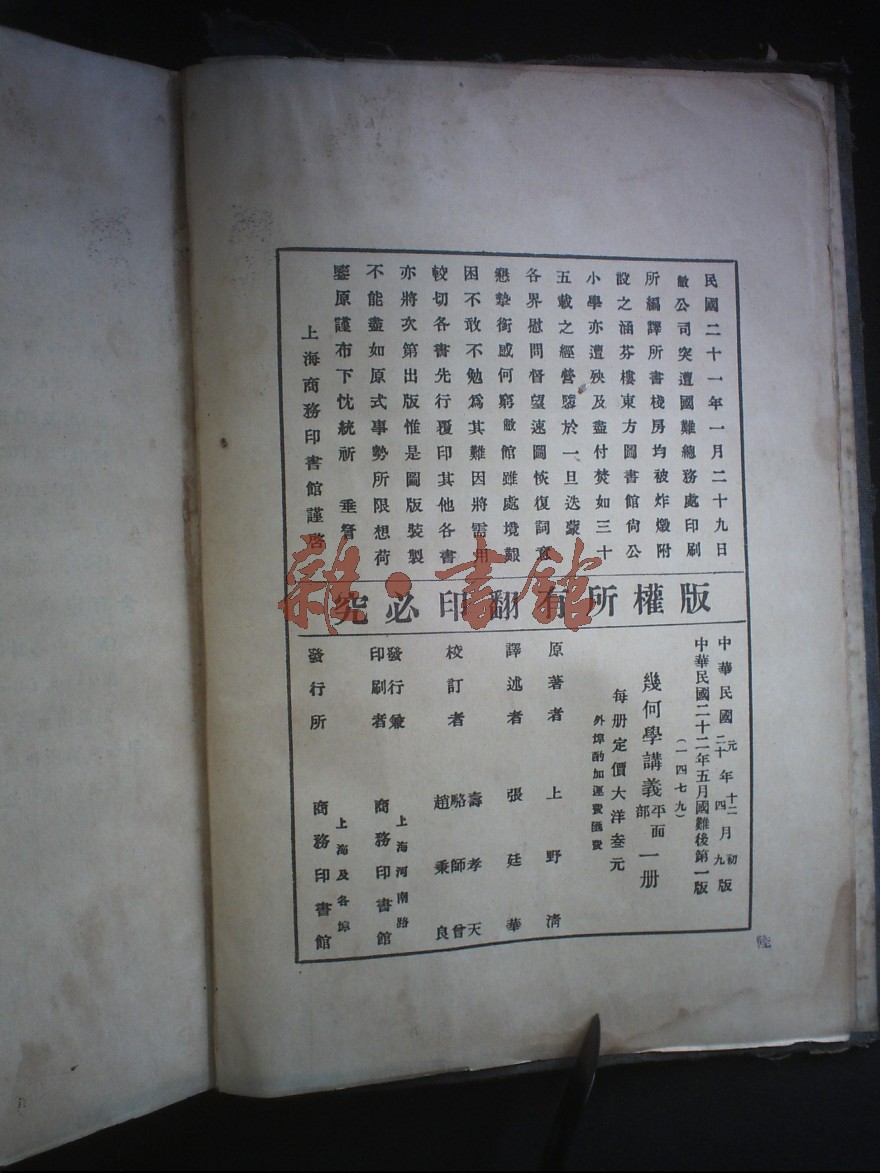 民國二十一年一月二十九日
敝公司突遭國難總務處印刷
所編譯所書棧房均被炸燬附
設之涵芬樓東方圖書館尙公
小學亦遭殃及盡付焚如三十
五載之經營隳於一旦迭蒙
各界慰問督望速圖恢復詞意
懇摯銜感何窮敝館雖處境艱
困不敢不勉爲其難因將需用
較切各書先行覆印其他各書
亦將次第出版惟是圖版裝製
不能盡如原式事勢所限想荷
鑒原謹布下忱統祈 垂詧
上海商務印書館謹啓
版權所有翻印必究
中華民國元年十二月初版
二十年四月九版
中華民國二十二年五月國難後第一版
(一四七九)
幾何學講義平面部一册
每册定價大洋叁元
外埠酌加運費匯費
原著者 上野淸
譯述者 張廷華
校訂者 壽孝天
駱師曾
趙秉良
發行兼印刷者 上海河南路
商務印書館
發行所 上海及各埠
商務印書館
雜·書館